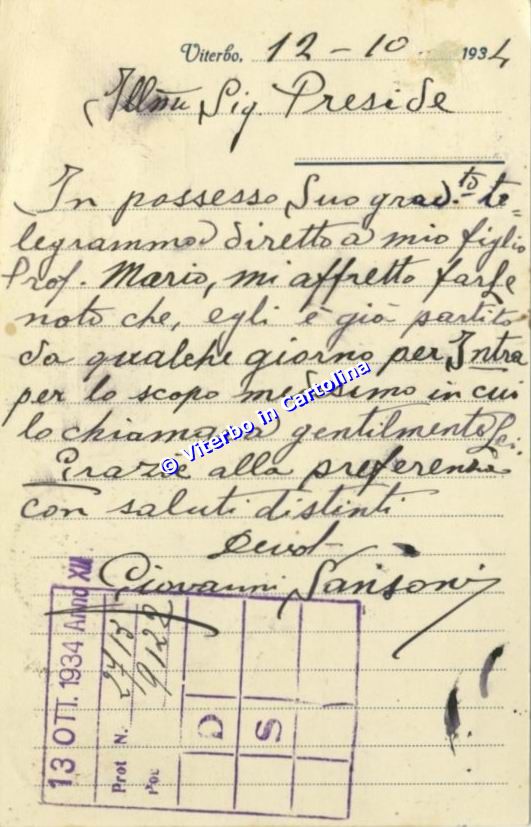 Viterbo, 12 - 10 1934
Illmu Sig. Preside
In possesso Suo grad.to te=
legrammo diretto a mio figlio
Prof. Mario, mi affretto farLe
noto che, egli è già partito
da qualche giorno per Intra
per lo scopo medesimo in cui
lo chiamava gentilmente Lei.
Grazie alla preferenza
con saluti distinti
Devot
Giovanni Sansoni
© Viterbo in Cartolina
13 OTT. 1934 Anno XII
Prot N. 2713
Pos 9122
D
S